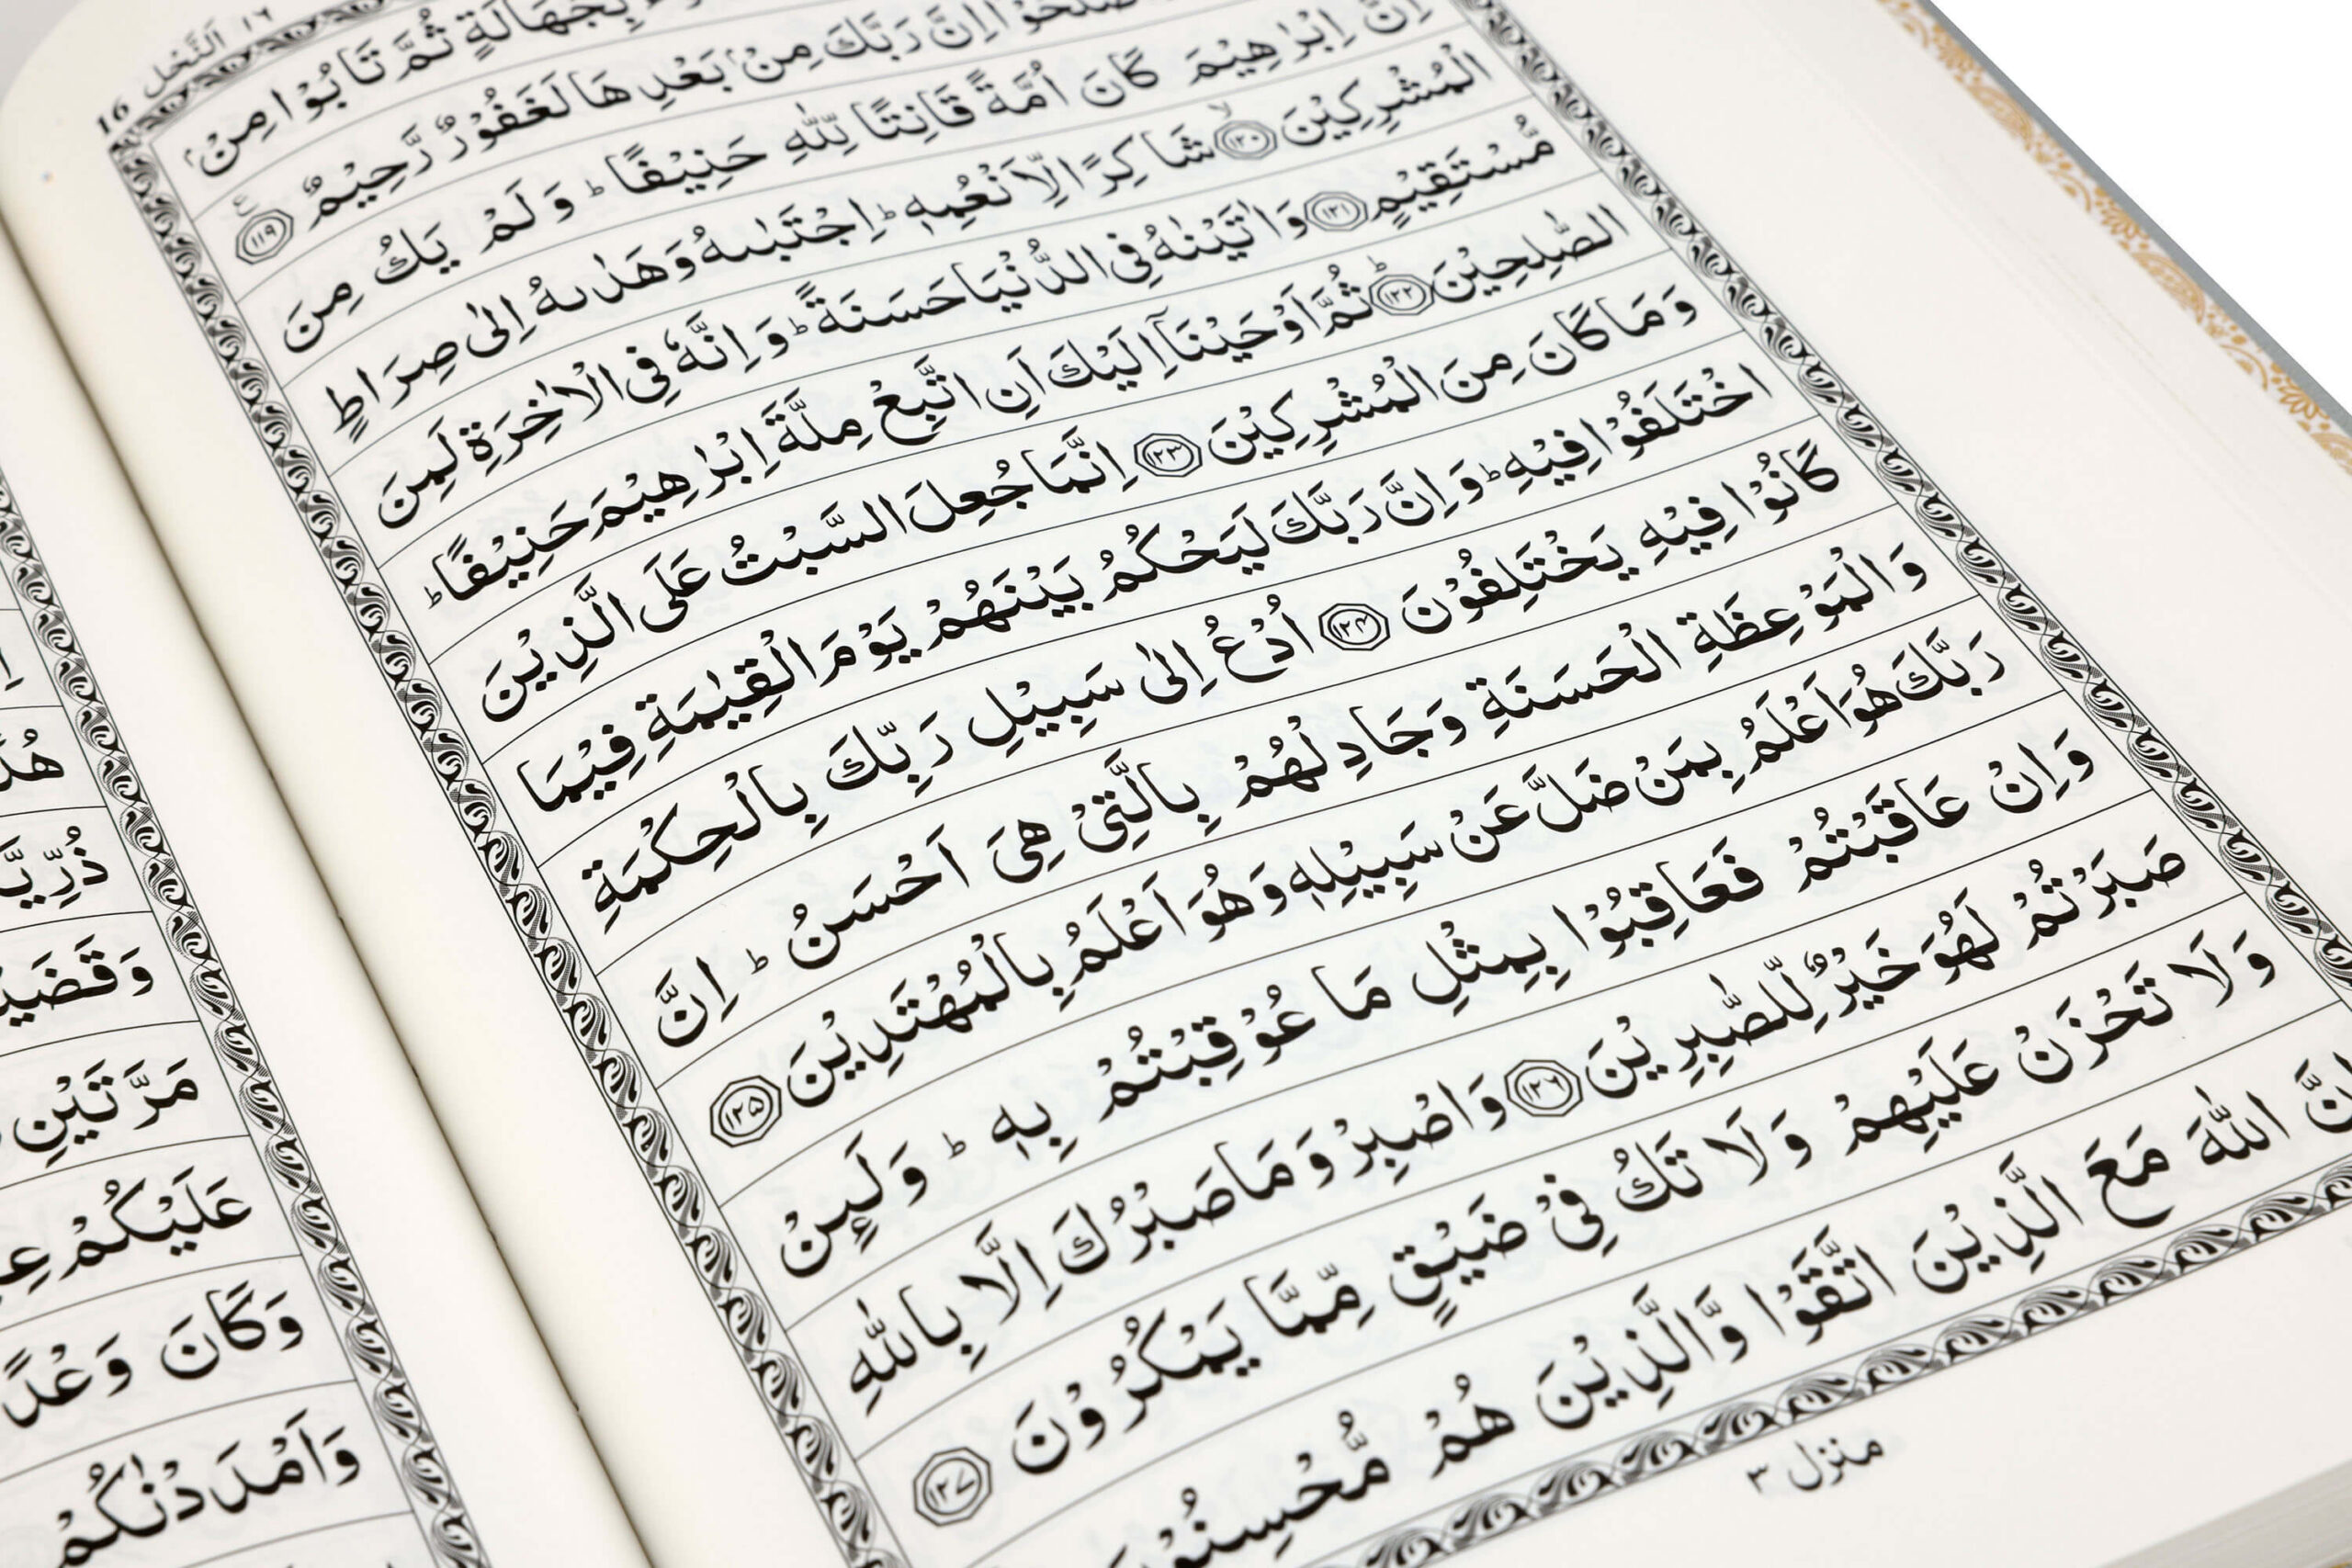 ١٦ اَلنَّحْل 16
بِجَهَالَةٍ ثُمَّ تَابُوْا مِنْۢ
اِنَّ رَبَّكَ مِنْۢ بَعْدِهَا لَغَفُوْرٌ رَّحِيْمٌ ۝١١٩ ع
اِنَّ اِبْرٰهِيْمَ كَانَ اُمَّةً قَانِتًا لِّلّٰهِ حَنِيْفًا ؕ وَلَمْ يَكُ مِنَ
الْمُشْرِكِيْنَ ۙ‏۝١٢٠ شَاكِرًا لِّاَنْعُمِهٖ ؕ اِجْتَبٰىهُ وَهَدٰىهُ اِلٰى صِرَاطٍ
مُّسْتَقِيْمٍ ۝١٢١ وَاٰتَيْنٰهُ فِى الدُّنْيَا حَسَنَةً ؕ وَاِنَّهٗ فِى الْاٰخِرَةِ لَمِنَ
الصّٰلِحِيْنَ ؕ‏۝١٢٢ ثُمَّ اَوْحَيْنَاۤ اِلَيْكَ اَنِ اتَّبِعْ مِلَّةَ اِبْرٰهِيْمَ حَنِيْفًا ؕ
وَمَا كَانَ مِنَ الْمُشْرِكِيْنَ ۝١٢٣ اِنَّمَا جُعِلَ السَّبْتُ عَلَى الَّذِيْنَ
اخْتَلَفُوْا فِيْهِ ؕ وَاِنَّ رَبَّكَ لَيَحْكُمُ بَيْنَهُمْ يَوْمَ الْقِيٰمَةِ فِيْمَا
كَانُوْا فِيْهِ يَخْتَلِفُوْنَ ۝١٢٤ اُدْعُ اِلٰى سَبِيْلِ رَبِّكَ بِالْحِكْمَةِ
وَالْمَوْعِظَةِ الْحَسَنَةِ وَجَادِلْهُمْ بِالَّتِىْ هِىَ اَحْسَنُ ؕ اِنَّ
رَبَّكَ هُوَ اَعْلَمُ بِمَنْ ضَلَّ عَنْ سَبِيْلِهٖ وَهُوَ اَعْلَمُ بِالْمُهْتَدِيْنَ ۝١٢٥
وَاِنْ عَاقَبْتُمْ فَعَاقِبُوْا بِمِثْلِ مَا عُوْقِبْتُمْ بِهٖ ؕ وَلَئِنْ
صَبَرْتُمْ لَهُوَ خَيْرٌ لِّلصّٰبِرِيْنَ ۝١٢٦ وَاصْبِرْ وَمَا صَبْرُكَ اِلَّا بِاللّٰهِ
وَلَا تَحْزَنْ عَلَيْهِمْ وَلَا تَكُ فِىْ ضَيْقٍ مِّمَّا يَمْكُرُوْنَ ۝١٢٧
اِنَّ اللّٰهَ مَعَ الَّذِيْنَ اتَّقَوْا وَّالَّذِيْنَ هُمْ مُّحْسِنُوْنَ
منزل ٣
مَرَّتَيْنِ
عَلَيْكُمْ
وَكَانَ وَعْدًا
وَاَمْدَدْنٰكُمْ